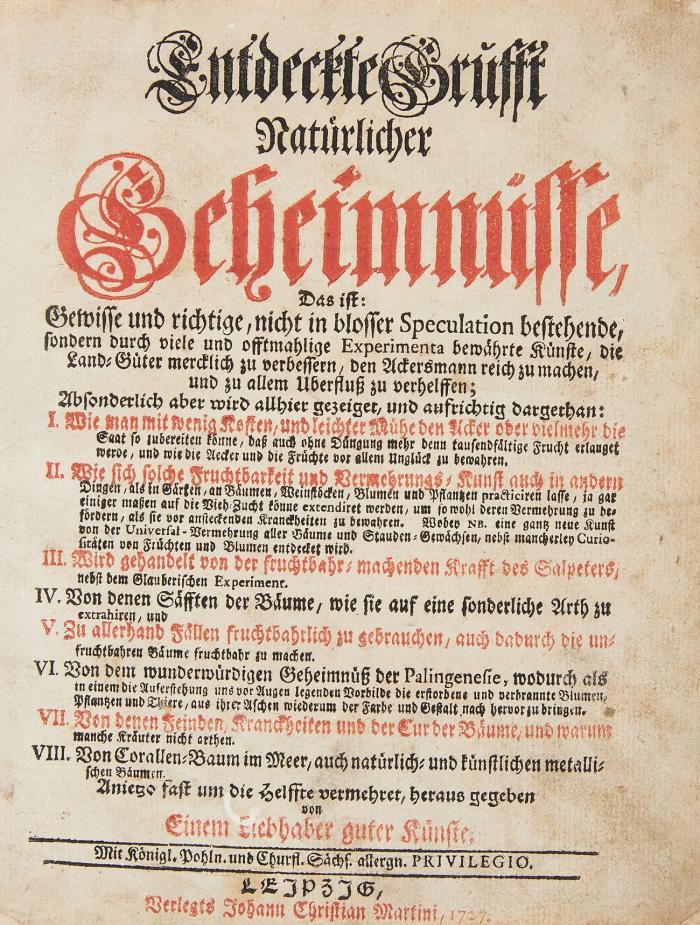 Entdeckte Grufft
Natürlicher
Geheimnüsse,
Das ist:
Gewisse und richtige, nicht in blosser Speculation bestehende,
sondern durch viele und offtmahlige Experimenta bewährte Künste, die
Land-Güter mercklich zu verbessern, den Ackersmann reich zu machen,
und zu allem Uberfluß zu verhelffen;
Absonderlich aber wird allhier gezeiget, und aufrichtig dargethan:
I. Wie man mit wenig Kosten, und leichter Mühe den Acker oder vielmehr die
Saat so zubereiten könne, daß auch ohne Düngung mehr denn tausendfältige Frucht erlanget
werde, und wie die Aecker und die Früchte vor allem Unglück zu bewahren.
II. Wie sich solche Fruchtbarkeit und Vermehrungs-Kunst auch in andern
Dingen, als in Gärten, an Bäumen, Weinstöcken, Blumen und Pflantzen practiciren lasse, ja gar
einiger maßen auf die Vieh-Zucht könne extendiret werden, um so wohl deren Vermehrung zu be-
fördern, als sie vor ansteckenden Kranckheiten zu bewahren. Wobey NB. eine gantz neue Kunst
von der Universal-Vermehrung aller Bäume und Stauden-Gewächsen, nebst mancherley Curio-
sitäten von Früchten und Blumen entdecket wird.
III. Wird gehandelt von der fruchtbahr-machenden Krafft des Salpeters,
nebst dem Glauberischen Experiment.
IV. Von denen Säfften der Bäume, wie sie auf eine sonderliche Arth zu
extrahiren, und
V. Zu allerhand Fällen fruchtbahrlich zu gebrauchen, auch dadurch die un-
fruchtbahren Bäume fruchtbahr zu machen.
VI. Von dem wunderwürdigen Geheimnüß der Palingenesie, wodurch als
in einem die Auferstehung uns vor Augen legenden Vorbilde die erstorbene und verbrannte Blumen,
Pflantzen und Thiere, aus ihrer Aschen wiederum der Farbe und Gestalt nach hervor zu bringen.
VII. Von denen Feinden, Kranckheiten und der Cur der Bäume, und warum
manche Kräuter nicht arthen.
VIII. Von Corallen-Baum im Meer, auch natürlich- und künstlichen metalli-
schen Bäumen.
Anietzo fast um die Helffte vermehret, heraus gegeben
von
Einem Liebhaber guter Künste.
Mit Königl. Pohln. und Churfl. Sächs. allergn. PRIVILEGIO.
LEIPZIG,
Verlegts Johann Christian Martini, 1727.